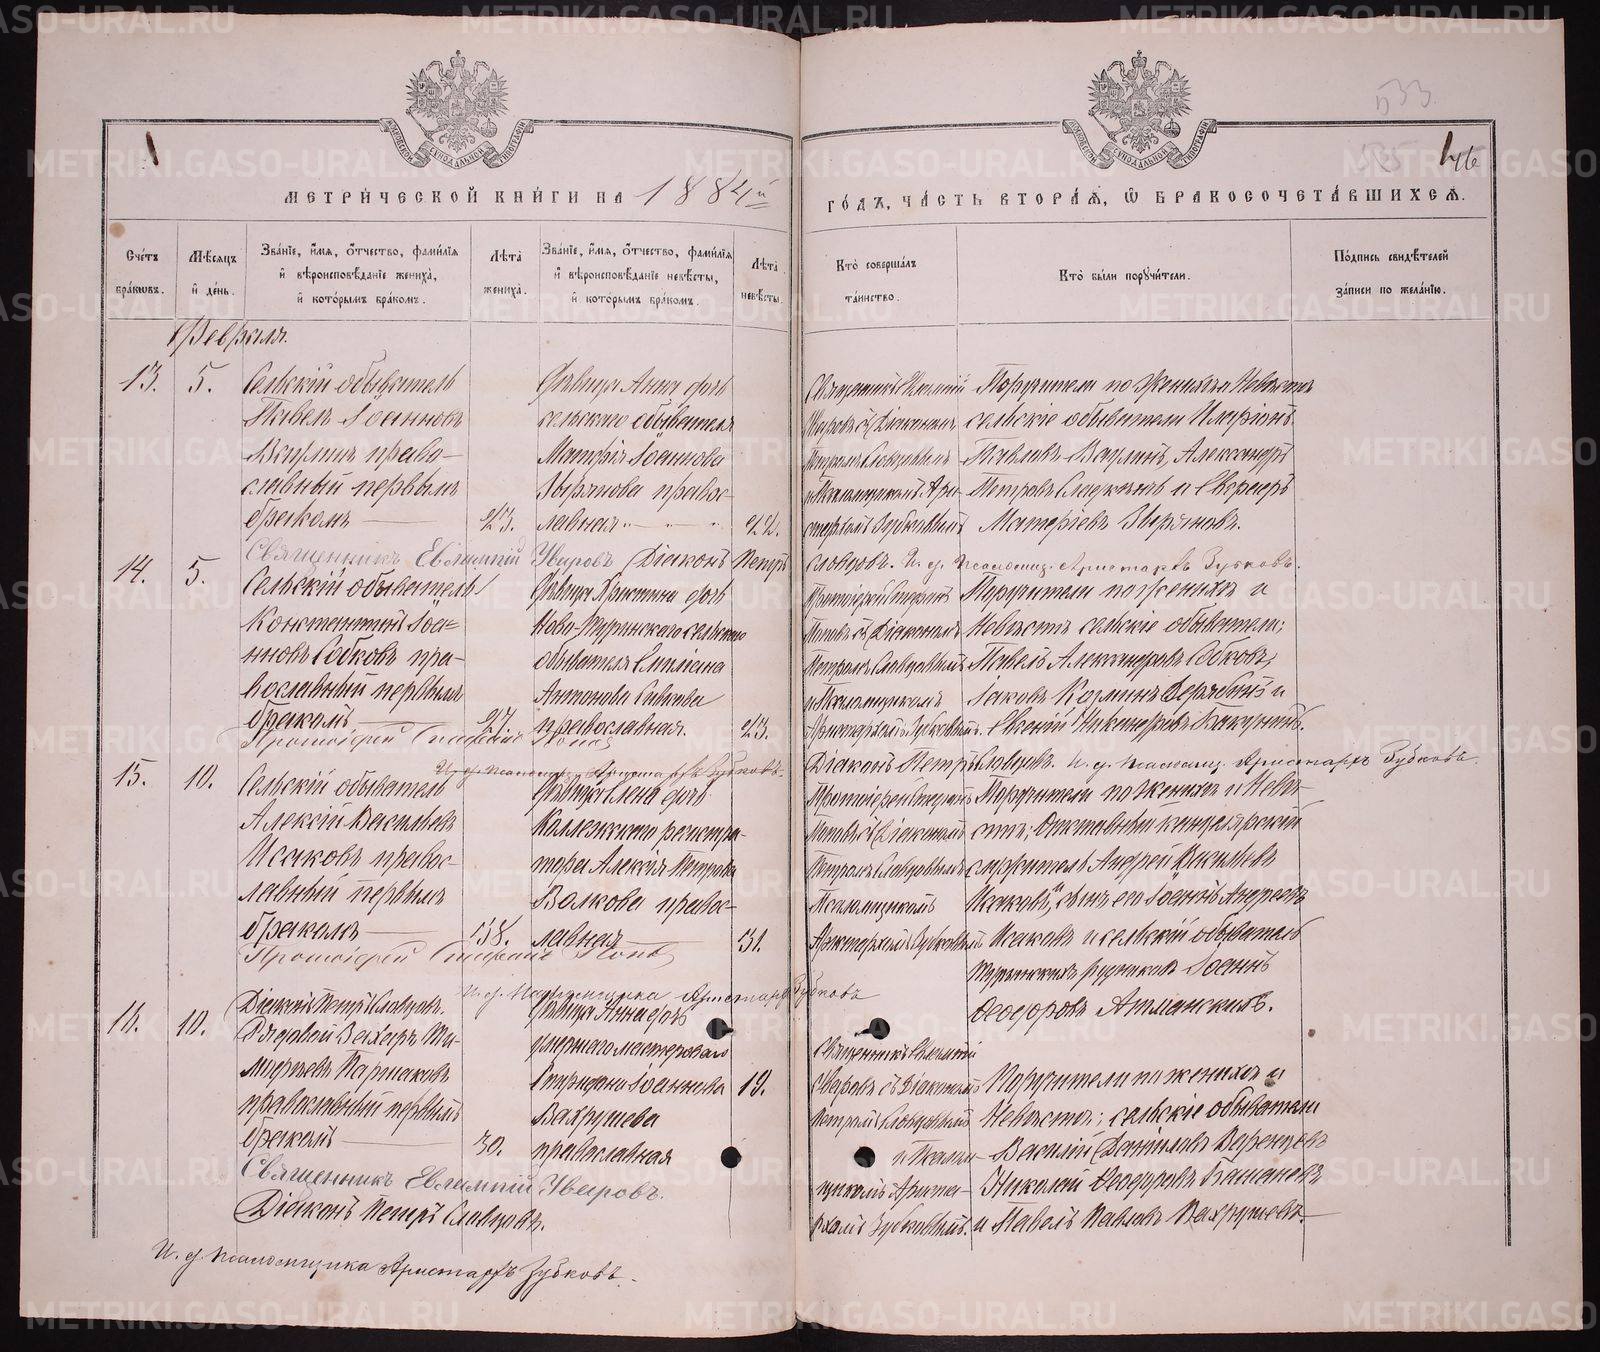 МЕТРИЧЕСКОЙ КНИГИ НА 1884й
ГОДЪ, ЧАСТЬ ВТОРАЯ, Ѡ БРАКОСОЧЕТАВШИХСЯ.
533
Счетъ браковъ.
Мѣсяцъ и день.
Званіе, имя, отчество, фамилія
и вѣроисповѣданіе жениха,
и которымъ бракомъ.
Лѣта
жениха.
Званіе, имя, отчество, фамилія
и вѣроисповѣданіе невѣсты,
и которымъ бракомъ.
Лѣта
невѣсты.
Кто совершалъ
таинство.
Кто были поручители.
Подпись свидѣтелей
записи по желанію.
Февраля.
13. 5.
Сельскій обыватель
Павелъ Іоанновъ
правос-
лавный первымъ
бракомъ 23.
Дѣвица Анна дочь
сельскаго обывателя
Матфія Іоаннова
Зырянова правос-
лавная 22.
Священникъ Евлампій
Уваровъ съ Діакономъ
Петромъ Словцовымъ
и Псаломщикомъ Ари-
стархомъ Зубковымъ
Поручители по Женихѣ и Невѣстѣ
сельскіе обыватели Иларіонъ
Павловъ Александръ
Петровъ и
Матфіевъ Зыряновъ.
Священникъ Евлампій Уваровъ Діаконъ Петръ Словцовъ. И. д. Псаломщ. Аристархъ Зубковъ.
14. 5.
Сельскій обыватель
Константинъ Іоа-
нновъ Собковъ пра-
вославный первымъ
бракомъ 27.
Дѣвица Христина дочь
Ново-Туринскаго сельскаго
обывателя
Антонова
православная. 23.
Протоіерей Стефанъ
Поповъ съ Діакономъ
Петромъ Словцовымъ
и Псаломщикомъ
Аристархомъ Зубковымъ.
Поручители по женихѣ и
Невѣстѣ сельскіе обыватели;
Павелъ Александровъ Собковъ,
Іаковъ Козминъ Дерябинъ и
Никандровъ Бакунинъ.
Протоіерей Стефанъ Поповъ
Діаконъ Петръ Словцовъ. И. д. Псаломщ. Аристархъ Зубковъ.
15. 10.
Сельскій обыватель
Алексій Васильевъ
Исаковъ правос-
лавный первымъ
бракомъ 38.
Дѣвица Елена дочь
Коллежскаго регистра-
тора Алексія Петрова
Волкова правос-
лавная 31.
Протоіерей Стефанъ
Поповъ съ Діакономъ
Петромъ Словцовымъ
Псаломщикомъ
Аристархомъ Зубковымъ
Поручители по женихѣ и Невѣ-
стѣ; Отставный канцелярскій
служитель Андрей Васильевъ
Исаковъ, сынъ его Іоаннъ Андреевъ
Исаковъ и сельскій обыватель
Туринскихъ рудниковъ Іоаннъ
Ѳеодоровъ
Протоіерей Стефанъ Поповъ
И. д. Псаломщика Аристархъ Зубковъ
Діаконъ Петръ Словцовъ.
16. 10.
Рядовой Захаръ Ти-
моѳеевъ Паршаковъ
православный первымъ
бракомъ 30.
Дѣвица Анна дочь
умершаго мастероваго
Спиридона Іоаннова
Вахрушева
православная
19.
Священникъ Евлампій
Уваровъ съ Діакономъ
Петромъ Словцовымъ
и Псалом-
щикомъ Ариста-
рхомъ Зубковымъ.
Поручители по женихѣ и
Невѣстѣ; сельскіе обыватели
Василій Даниловъ
Николай Ѳеодоровъ
и Павелъ Павловъ Вахрушевъ.
Священникъ Евлампій Уваровъ.
Діаконъ Петръ Словцовъ.
И. д. псаломщика Аристархъ Зубковъ.
METRIKI.GASO-URAL.RU